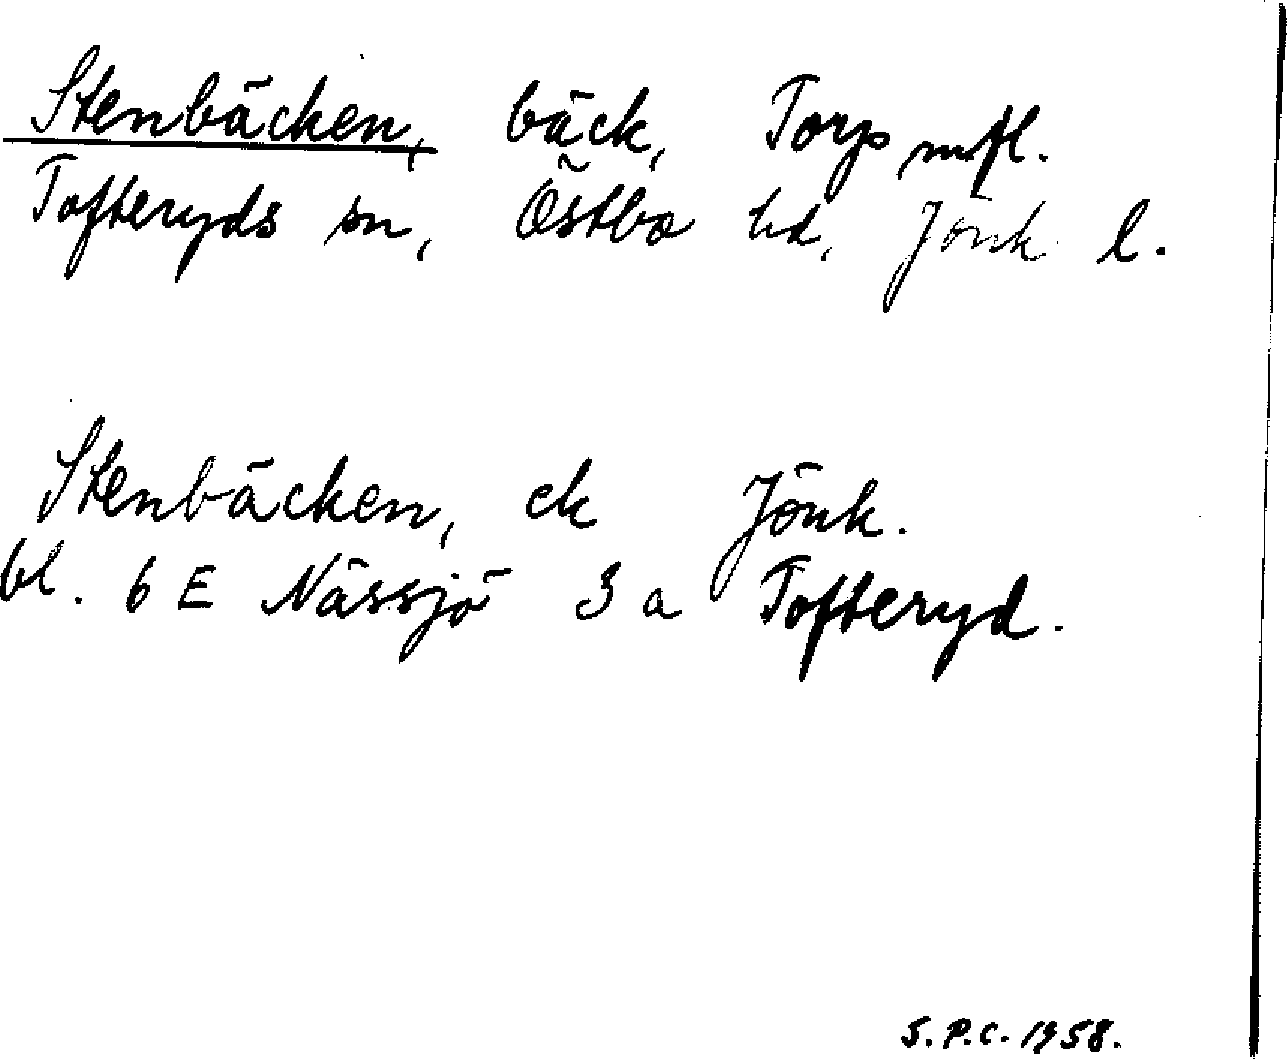 Stenbäcken, bäck, Torp mfl.
Tofteryds sn, Östbo hd, Jönk. l.
Stenbäcken, ek Jönk.
bl. 6 E Nässjö 3 a Tofteryd.
S.P.C. 1958.